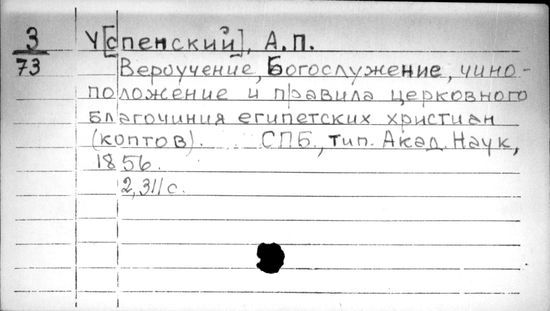 3 У[спенский], А.П.
73 Вероучение, Богослужение, чино-
положение и правила церковного
благочиния египетских христиан
(коптов). СПБ., тип. Акад. Наук,
1856.
2,311с.